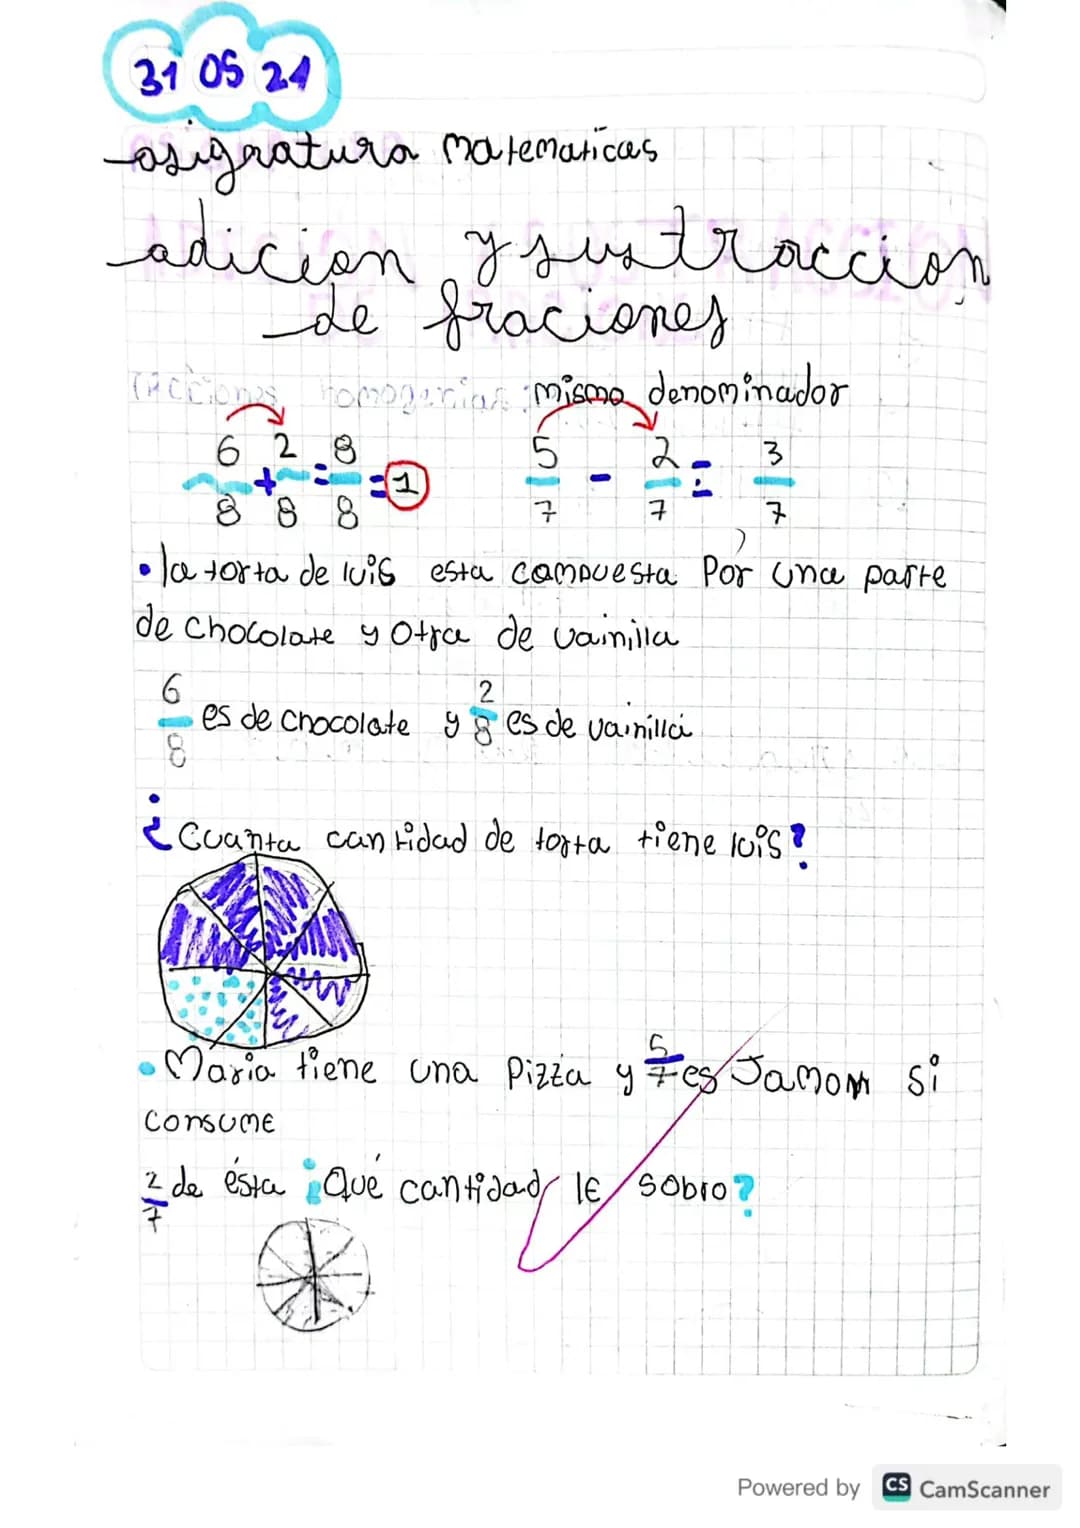 31 05 21
asignatura matematicas
adicion y sustraccion
de fraciones
mismo denominador
6/8 + 2/8 = 8/8 = 1 5/7 - 2/7 = 3/7
• la torta de luis esta compuesta Por una parte
de chocolate y Otra de vainilla
6/8 es de chocolate y 2/8 es de vainilla
¿Cuanta cantidad de torta tiene luis?
• Maria tiene una Pizza y 5/7 es Jamom si
consume
2/7 de ésta ¿Qué cantidad le sobro?
Powered by CS CamScanner